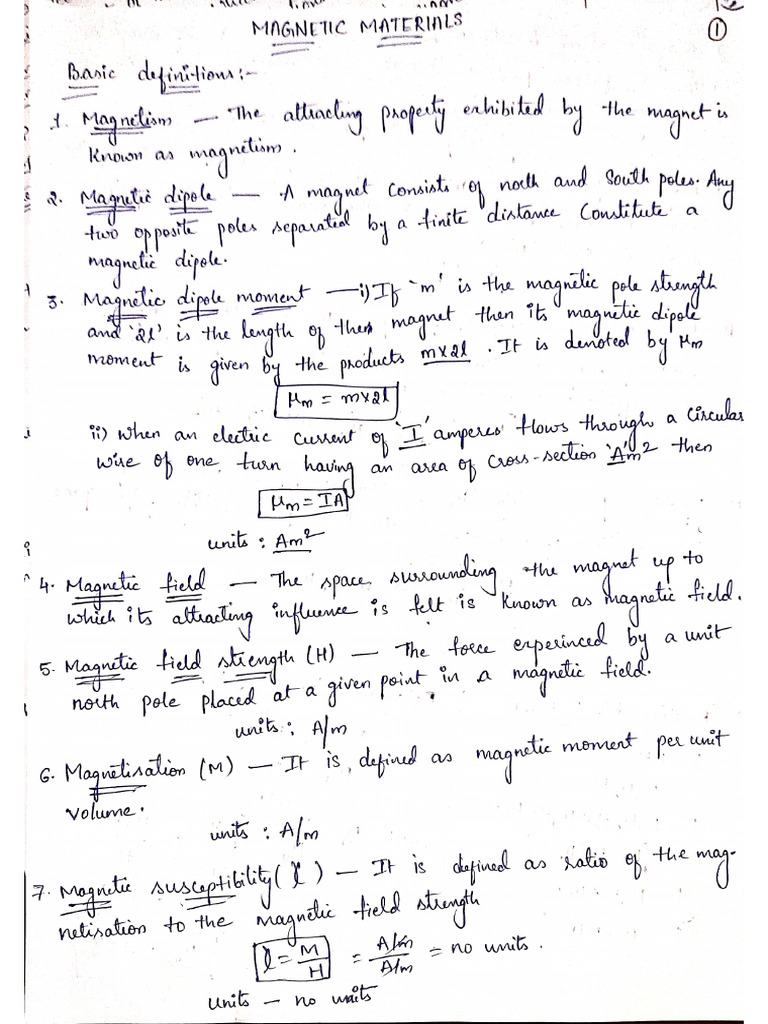 MAGNETIC MATERIALS
1
Basic definitions:-
1. Magnetism — The attracting property exhibited by the magnet is
known as magnetism.
2. Magnetic dipole — A magnet consists of north and south poles. Any
two opposite poles separated by a finite distance constitute a
magnetic dipole.
3. Magnetic dipole moment — i) If 'm' is the magnetic pole strength
and '2l' is the length of the magnet then its magnetic dipole
moment is given by the products m×2l. It is denoted by μm
μm = m×2l
ii) When an electric current of 'I' amperes flows through a circular
wire of one turn having an area of cross-section 'A'm² then
μm = IA
units : Am²
4. Magnetic field — The space surrounding the magnet up to
which its attracting influence is felt is known as magnetic field.
5. Magnetic field strength (H) — The force experinced by a unit
north pole placed at a given point in a magnetic field.
units : A/m
6. Magnetisation (M) — It is defined as magnetic moment per unit
volume.
units : A/m
7. Magnetic susceptibility (χ) — It is defined as ratio of the mag-
netisation to the magnetic field strength
χ = M/H = A/m / A/m = no units.
units — no units